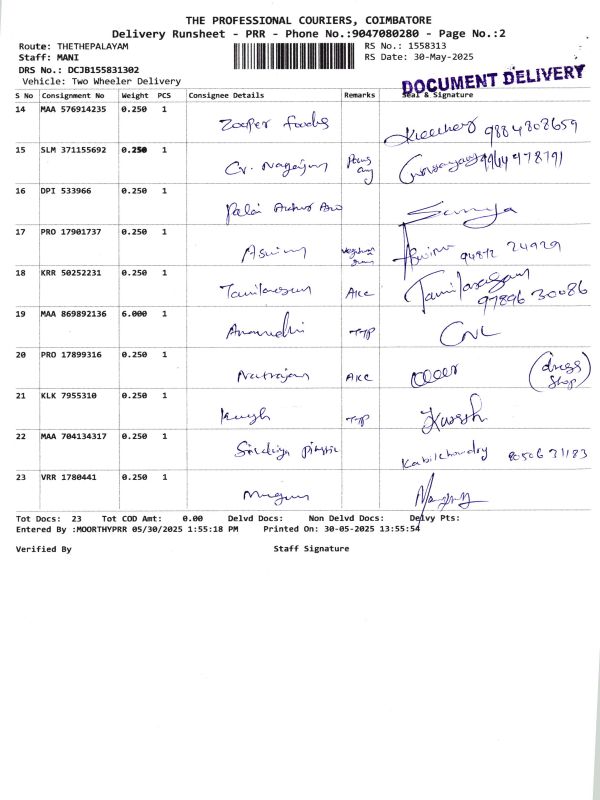 THE PROFESSIONAL COURIERS, COIMBATORE
Delivery Runsheet - PRR - Phone No.:9047080280 - Page No.:2
Route: THETHEPALAYAM
RS No.: 1558313
Staff: MANI
RS Date: 30-May-2025
DRS No.: DCJB155831302
Vehicle: Two Wheeler Delivery
DOCUMENT DELIVERY
S No Consignment No Weight PCS Consignee Details Remarks Seal & Signature
14 MAA 576914235 0.250 1 Zooper foods
15 SLM 371155692 0.250 1 Cv. Nagarjun
16 DPI 533966 0.250 1
17 PRO 17901737 0.250 1 Aswin 94872 24929
18 KRR 50252231 0.250 1 Tamilarasan AKC Tamilarasan
97896 30086
19 MAA 869892136 6.000 1 TYP
20 PRO 17899316 0.250 1 Natrajan AKC (dress
shop)
21 KLK 7955310 0.250 1 TYP
22 MAA 704134317 0.250 1 Kabilchowdry 80506 31183
23 VRR 1780441 0.250 1
Tot Docs: 23 Tot COD Amt: 0.00 Delvd Docs: Non Delvd Docs: Delvy Pts:
Entered By :MOORTHYPRR 05/30/2025 1:55:18 PM Printed On: 30-05-2025 13:55:54
Verified By Staff Signature